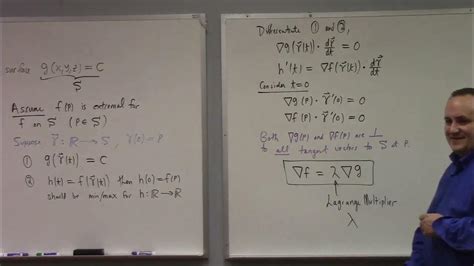 surface g(x,y,z) = C
S
Assume f(P) is extremal for
f on S (P ∈ S)
Suppose, γ⃗ : ℝ → S, γ⃗(0) = P
① g(γ⃗(t)) = C
② h(t) = f(γ⃗(t)) then h(0) = f(P)
should be min/max for h: ℝ → ℝ
Differentiate ① and ②,
∇g(γ⃗(t)) · dγ⃗/dt = 0
h'(t) = ∇f(γ⃗(t)) · dγ⃗/dt
Consider t = 0
∇g(P) · γ⃗'(0) = 0
∇f(P) · γ⃗'(0) = 0
Both ∇g(P) and ∇f(P) are ⊥
to all tangent vectors to S at P.
∇f = λ∇g
Lagrange Multiplier
λ